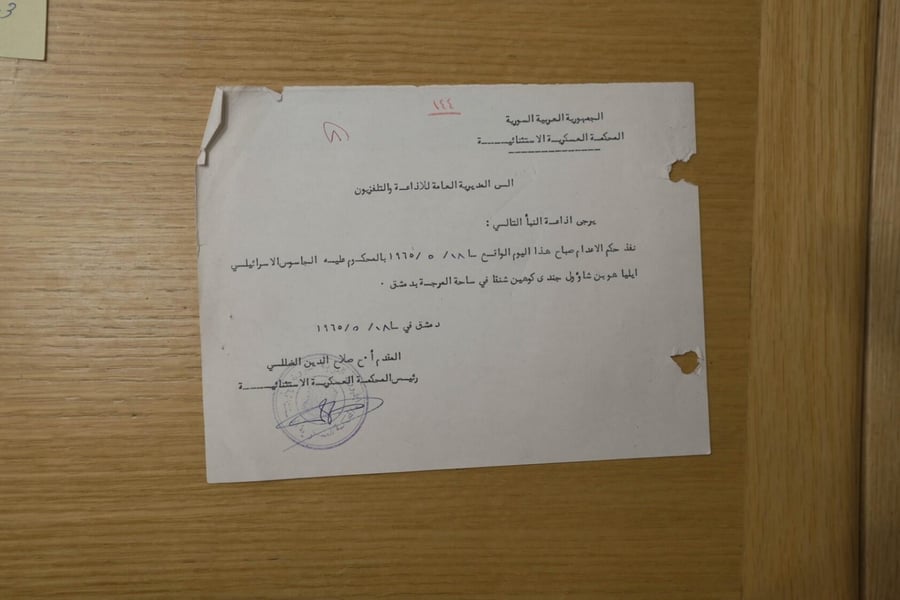 3
١٤٤
الجمهورية العربية السورية
المحكمة العسكرية الاستثنائيــــة
الى المديرية العامة للاذاعة والتلفزيون
يرجى اذاعة النبأ التالي :
نفذ حكم الاعدام صباح هذا اليوم الواقع في ١٨/ ٥ /١٩٦٥ بالمحكوم عليه الجاسوس الاسرائيلي
ايلياهو بن شاؤول جندي كوهين شنقا في ساحة المرجة بدمشق ٠
دمشق في ١٨/ ٥ /١٩٦٥
المقدم أ ٠ح صلاح الدين الضللي
رئيس المحكمة العسكرية الاستثنائيــــة